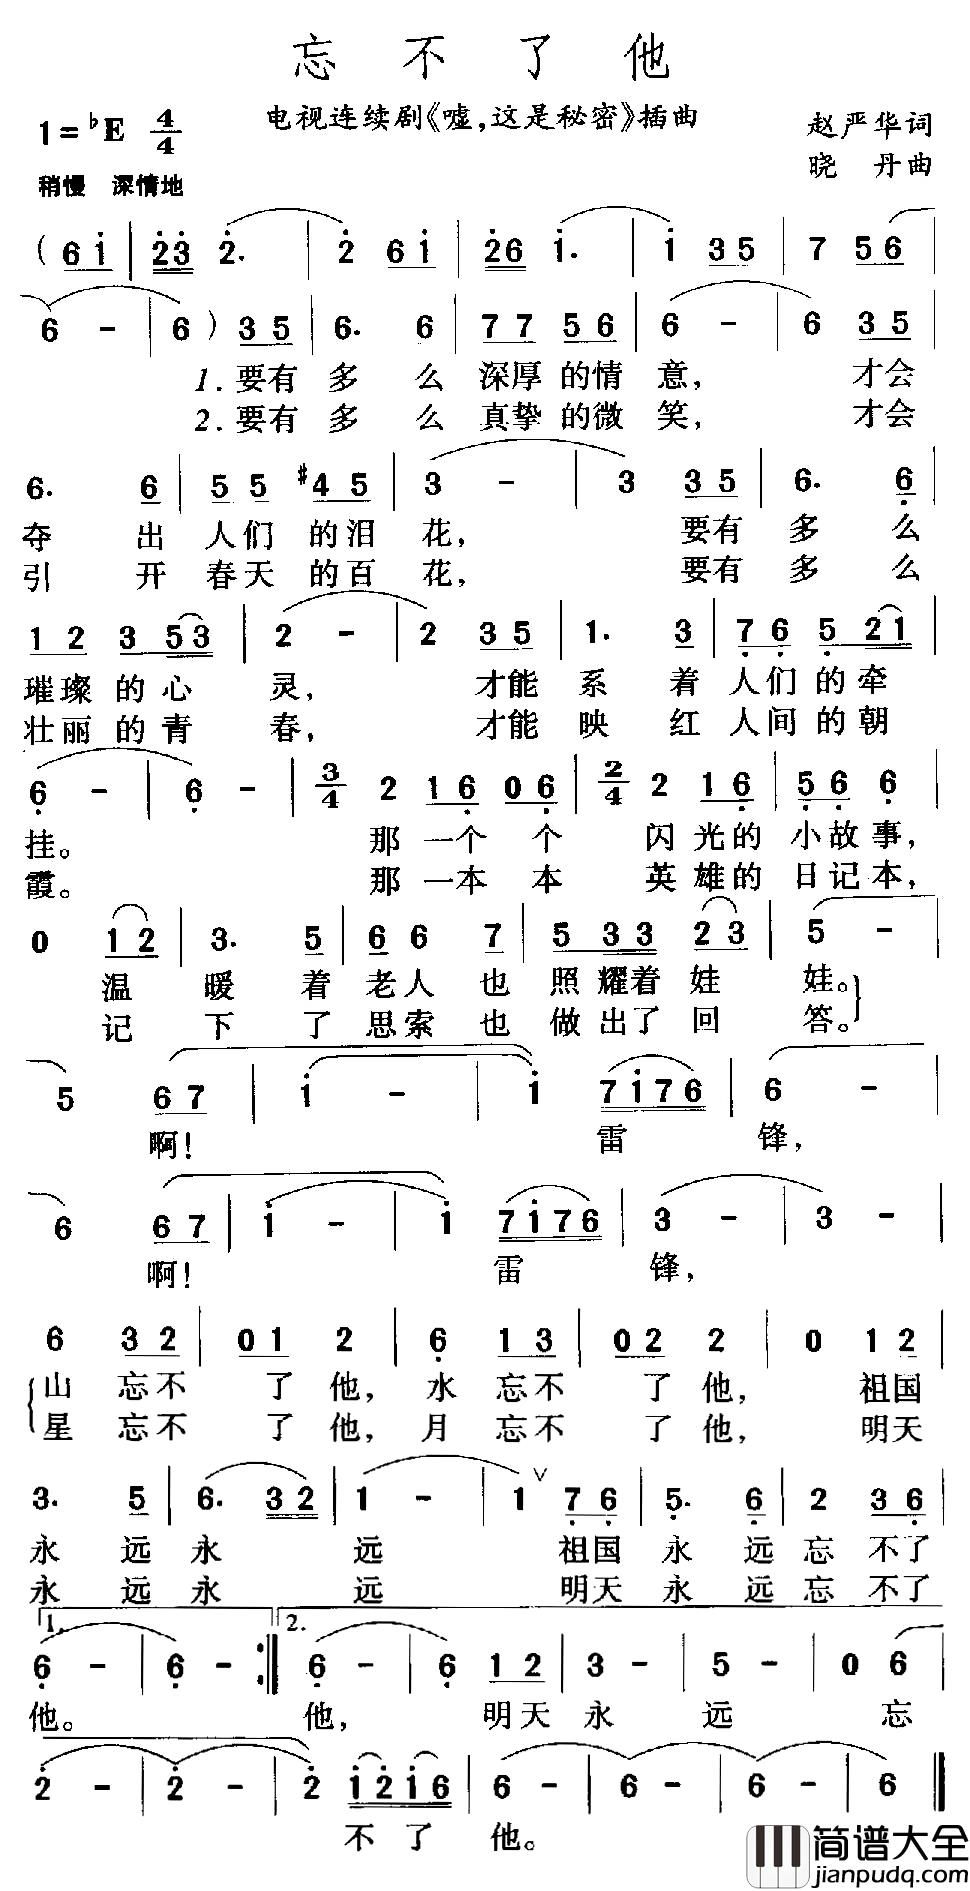 忘不了他
电视连续剧《嘘,这是秘密》插曲
1=♭E 4/4
赵严华词
晓丹曲
稍慢 深情地
( 6 1 | 2 3 2. | 2 6 1 | 2 6 1. | 1 3 5 | 7 5 6 |
6 - | 6 ) 3 5 | 6. 6 | 7 7 5 6 | 6 - | 6 3 5 |
1.要有多么深厚的情意, 才会
2.要有多么真挚的微笑, 才会
6. 6 | 5 5 #4 5 | 3 - | 3 3 5 | 6. 6 |
夺出人们的泪花, 要有多么
引开春天的百花, 要有多么
1 2 3 5 3 | 2 - | 2 3 5 | 1. 3 | 7 6 5 2 1 |
璀璨的心灵, 才能系着人们的牵
壮丽的青春, 才能映红人间的朝
6 - | 6 - | 3/4 2 1 6 0 6 | 2/4 2 1 6 | 5 6 6 |
挂。 那一个个闪光的小故事,
霞。 那一本本英雄的日记本,
0 1 2 | 3. 5 | 6 6 7 | 5 3 3 2 3 | 5 - |
温暖着老人也照耀着娃娃。
记下了思索也做出了回答。
5 6 7 | 1 - | 1 7 1 7 6 | 6 - |
啊! 雷锋,
6 6 7 | 1 - | 1 7 1 7 6 | 3 - | 3 - |
啊! 雷锋,
6 3 2 | 0 1 2 | 6 1 3 | 0 2 2 | 0 1 2 |
山忘不了他, 水忘不了他, 祖国
星忘不了他, 月忘不了他, 明天
3. 5 | 6. 3 2 | 1 - | 1 ∨ 7 6 | 5. 6 | 2 3 6 |
永远永远 祖国永远忘不了
永远永远 明天永远忘不了
1. 2.
6 - | 6 - :‖ 6 - | 6 1 2 | 3 - | 5 - | 0 6 |
他。 他, 明天永远忘
2 - | 2 - | 2 1 2 1 6 | 6 - | 6 - | 6 - | 6 ‖
不了他。
简谱大全
jianpudq.com